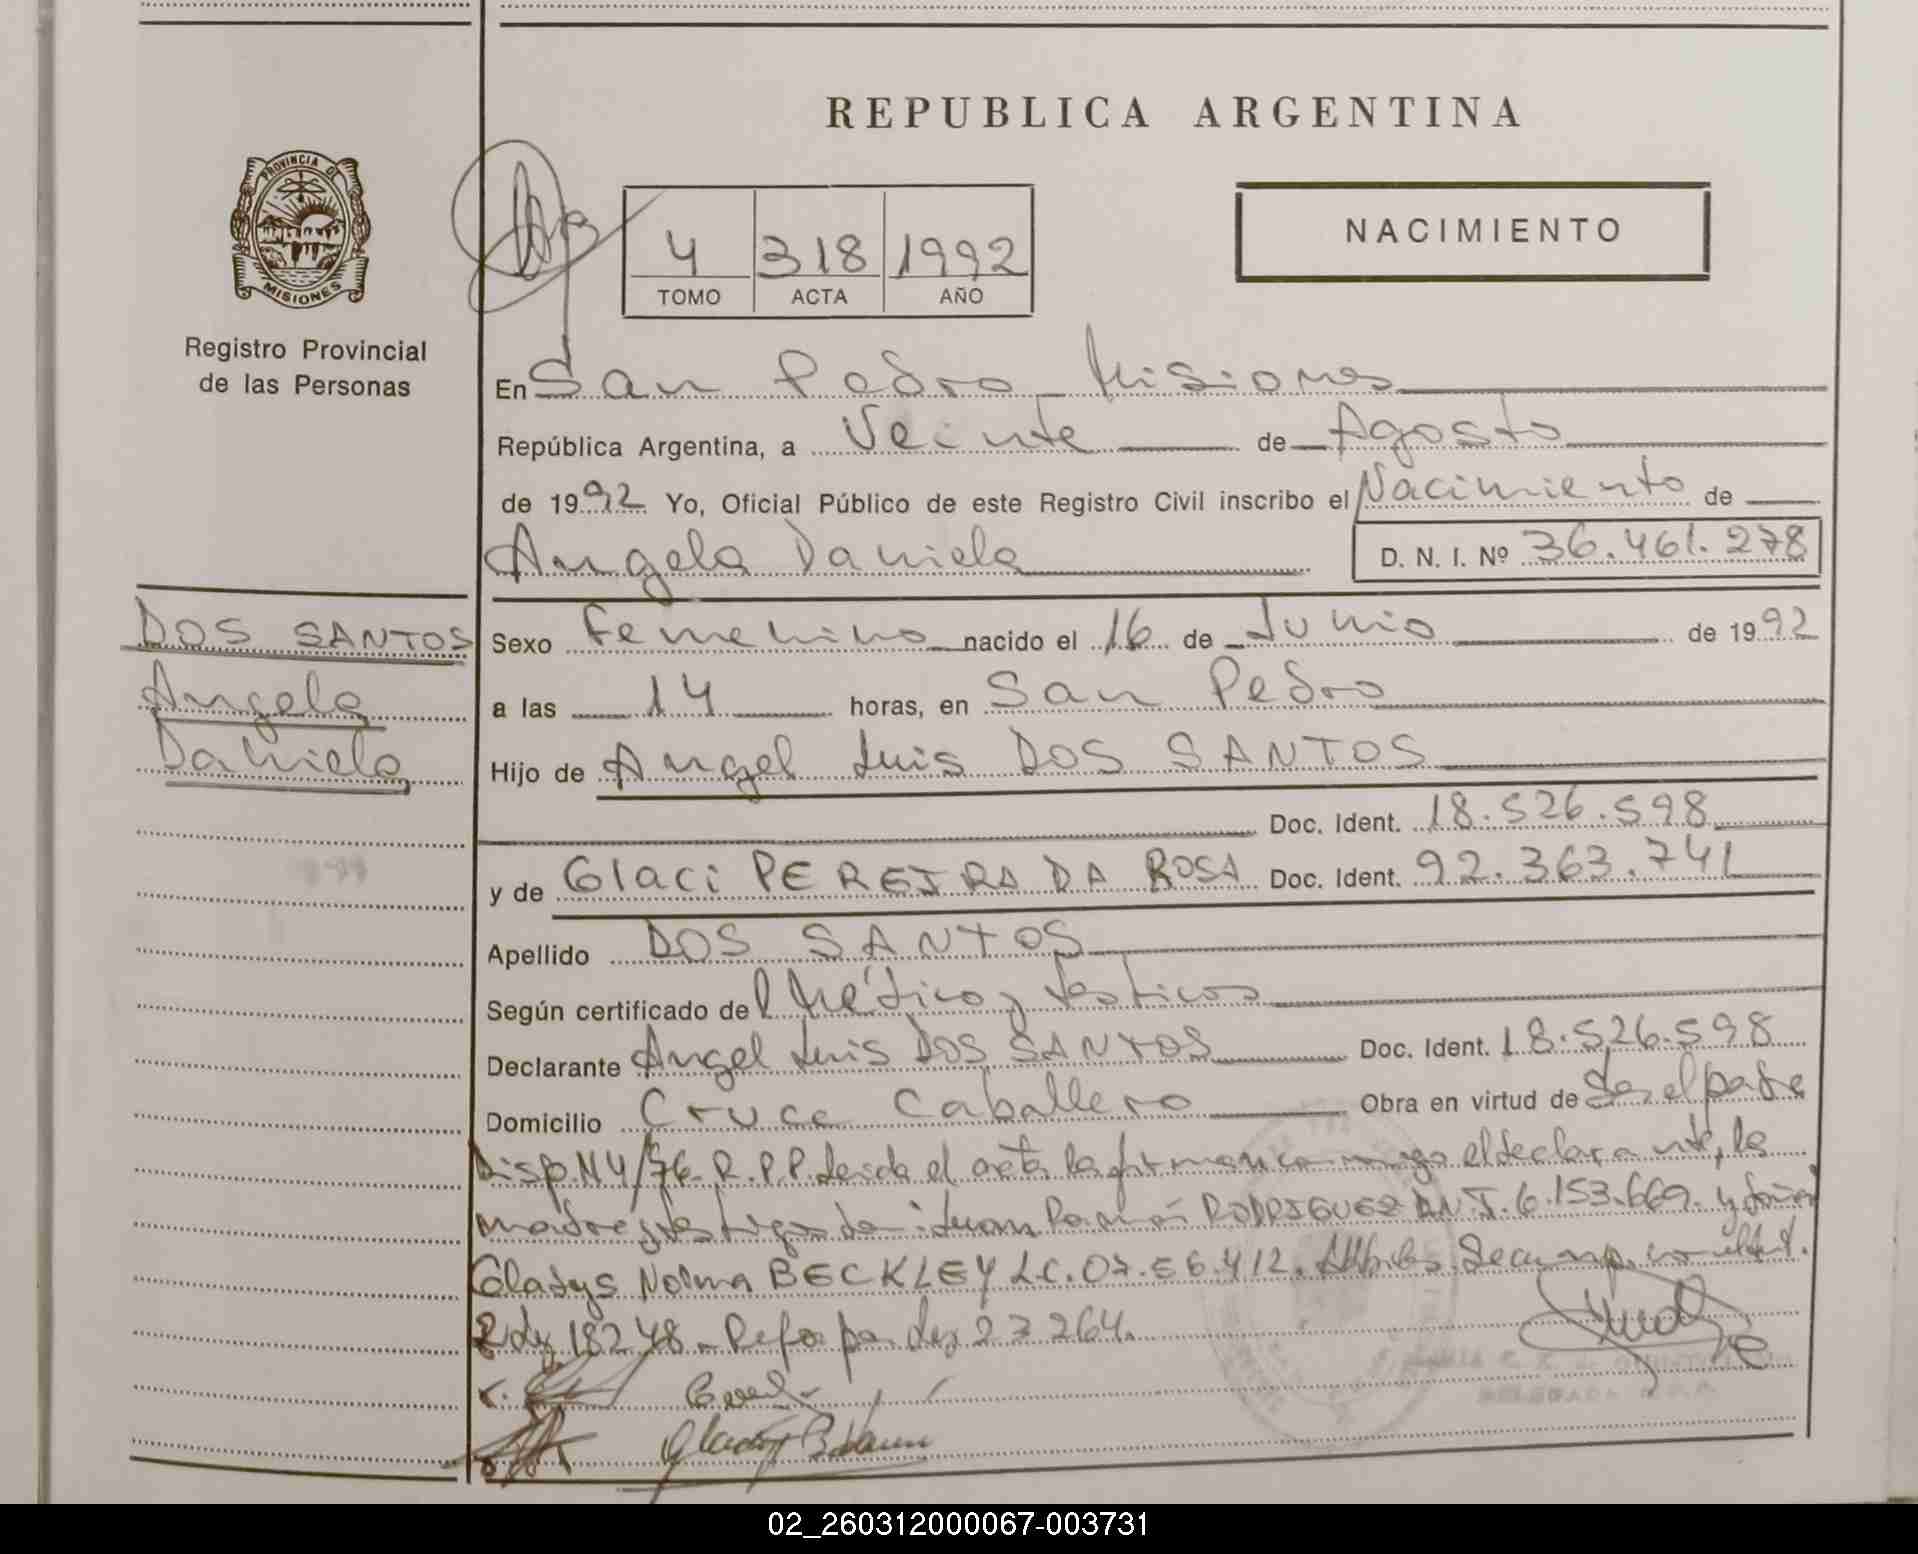 REPUBLICA ARGENTINA
PROVINCIA DE
MISIONES
Registro Provincial
de las Personas
4 318 1992
TOMO ACTA AÑO
NACIMIENTO
En San Pedro Misiones
República Argentina, a Veinte de Agosto
de 1992 Yo, Oficial Público de este Registro Civil inscribo el Nacimiento de
Angela Daniela D. N. I. Nº 36.461.278
DOS SANTOS
Angela
Daniela
Sexo Femenino nacido el 16 de Junio de 1992
a las 14 horas, en San Pedro
Hijo de Angel Luis DOS SANTOS
Doc. Ident. 18.526.598
y de Glaci PEREIRA DA ROSA Doc. Ident. 92.363.741
Apellido DOS SANTOS
Según certificado de Médico y testigos
Declarante Angel Luis DOS SANTOS Doc. Ident. 18.526.598
Domicilio Cruce Caballero Obra en virtud de Ser el padre
Disp. N 4/76. R.P.P. Leída el acta la firman conmigo el declarante, la
madre y testigos Juan Ramón RODRIGUEZ D.N.I. 6.153.669. y
Gladys Norma BECKLEY L.C.
Ley 18248. Ref. por Ley 23264.
02_260312000067-003731